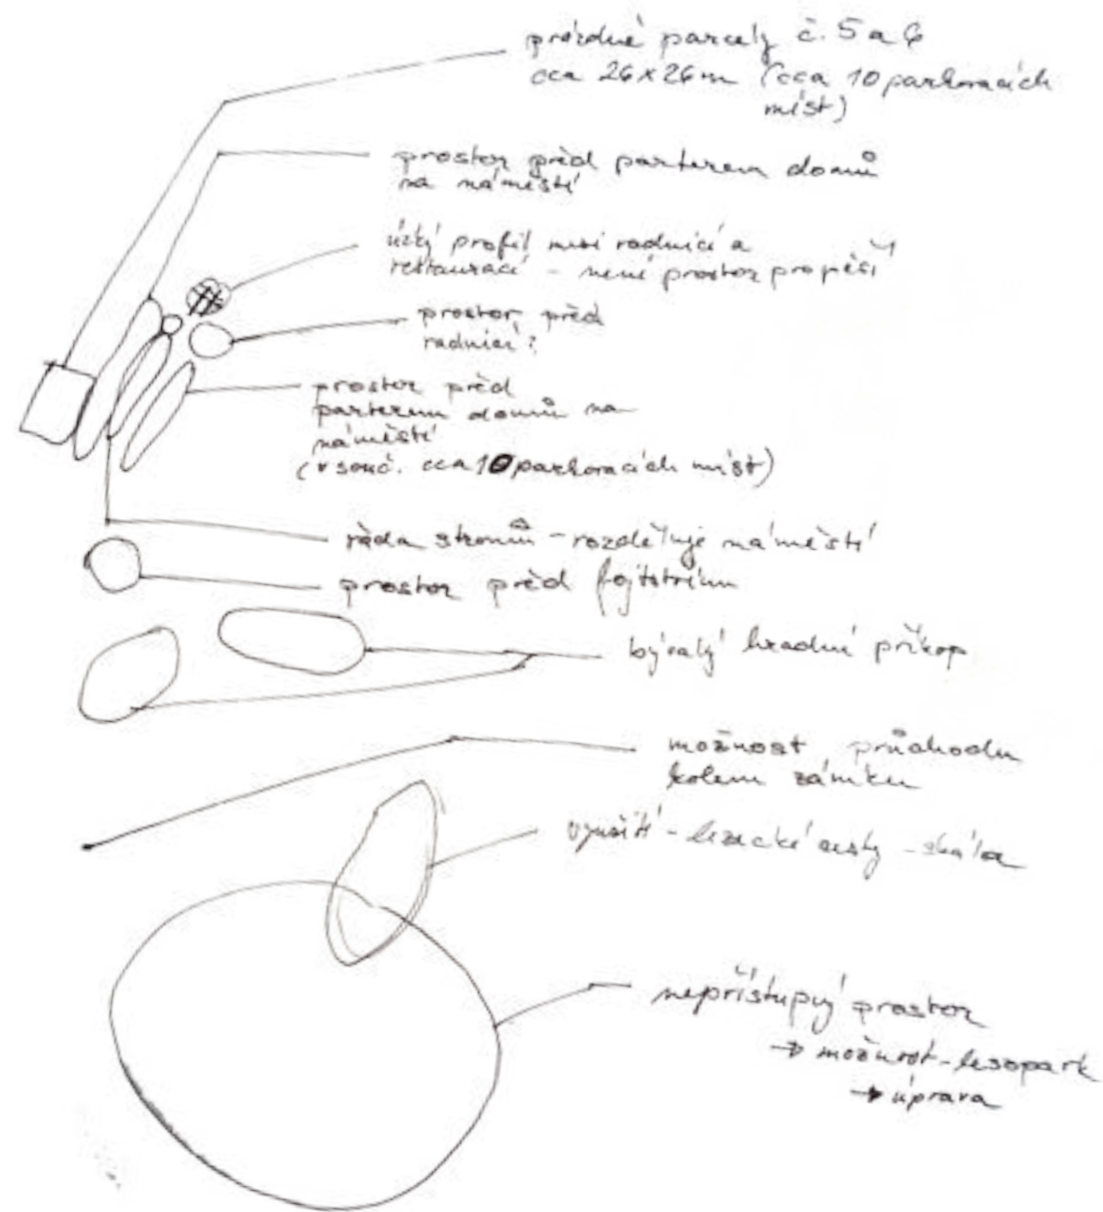 prázdné parcely č. 5 a 6
cca 26x26m (cca 10 parkovacích
míst)
prostor před parterem domů
na náměstí
úzký profil mezi radnicí a
restaurací - není prostor pro pěší
prostor před
radnicí?
prostor před
parterem domů na
náměstí
(v souč. cca 10 parkovacích míst)
řada stromů - rozděluje náměstí
prostor před fojtstvím
bývalý hradní příkop
možnost průchodu
kolem zámku
využití - lezecké cesty - skála
nepřístupný prostor
→ možnost - lesopark
→ úprava